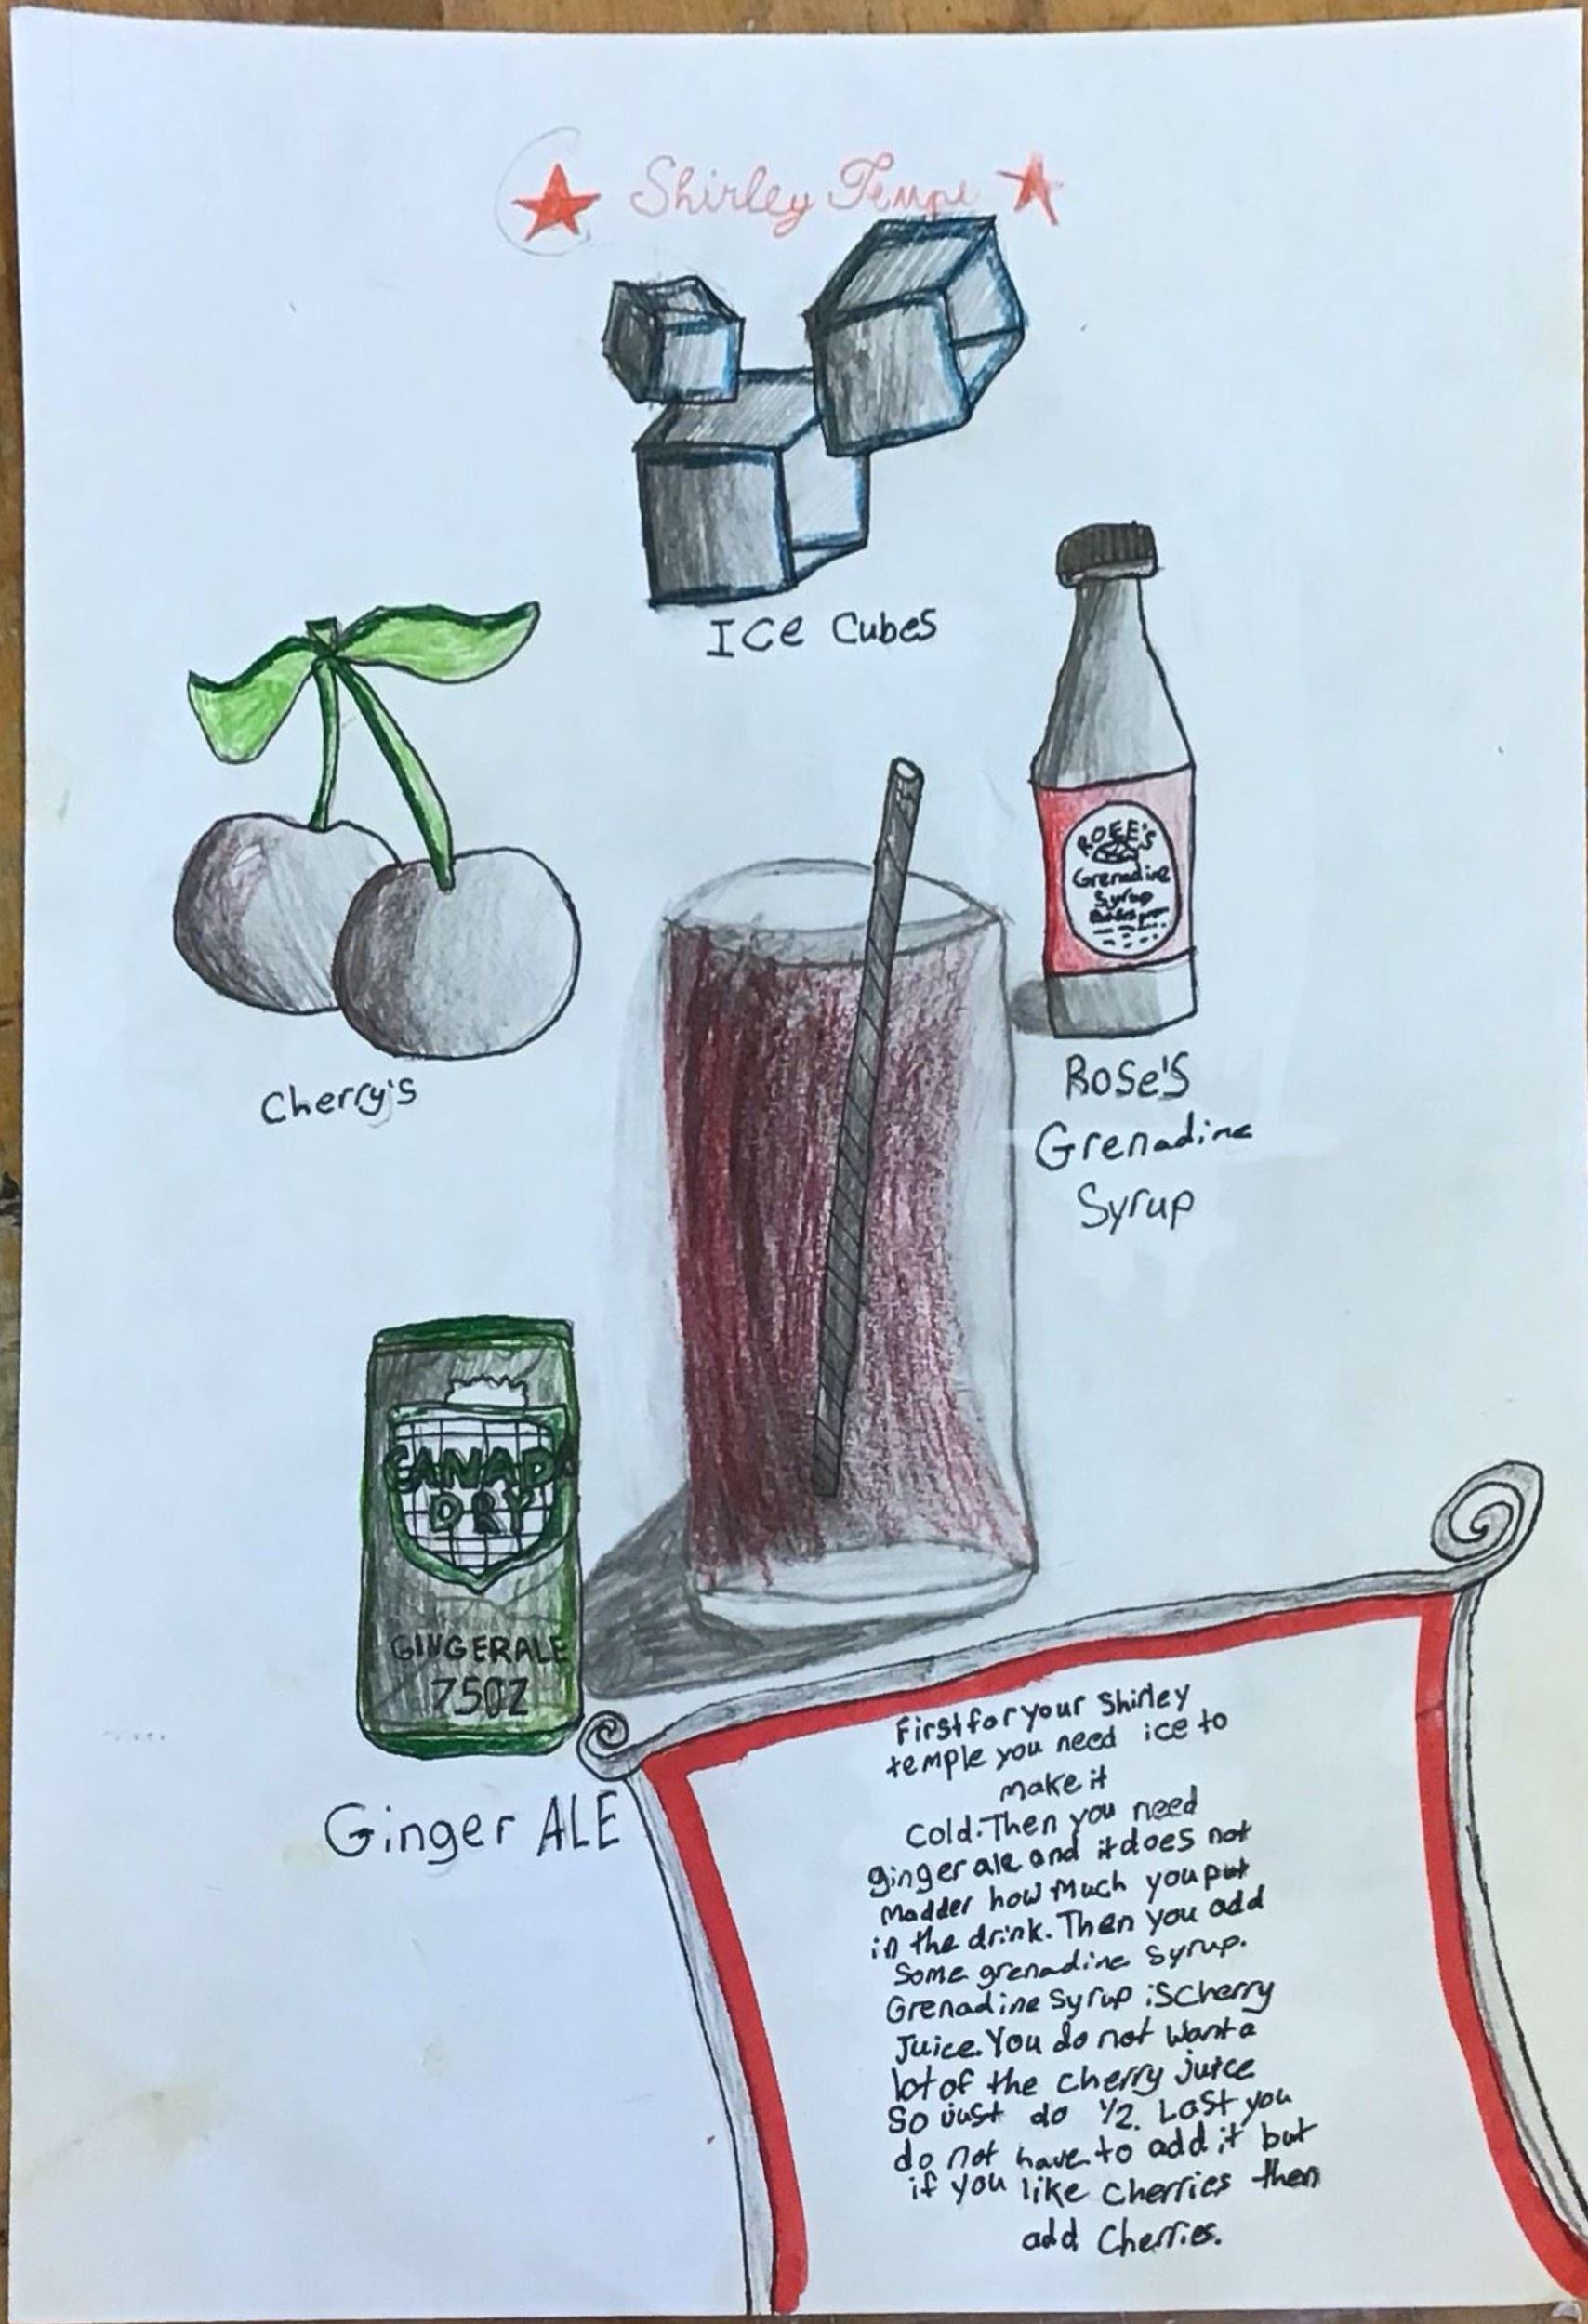 Shirley Tempe
ICe Cubes
ROEE'S
Grenadine
Syrup
Cherry's
ROSe'S
Grenadine
Syrup
CANADA
DRY
GINGERALE
750Z
Ginger ALE
First for your Shirley
temple you need ice to
make it
Cold. Then you need
ginger ale and it does not
Madder how Much you put
in the drink. Then you add
Some grenadine Syrup.
Grenadine Syrup is Cherry
Juice. You do not want a
lot of the cherry juice
So just do 1/2. Last you
do not have to add it but
if you like Cherries then
add Cherries.